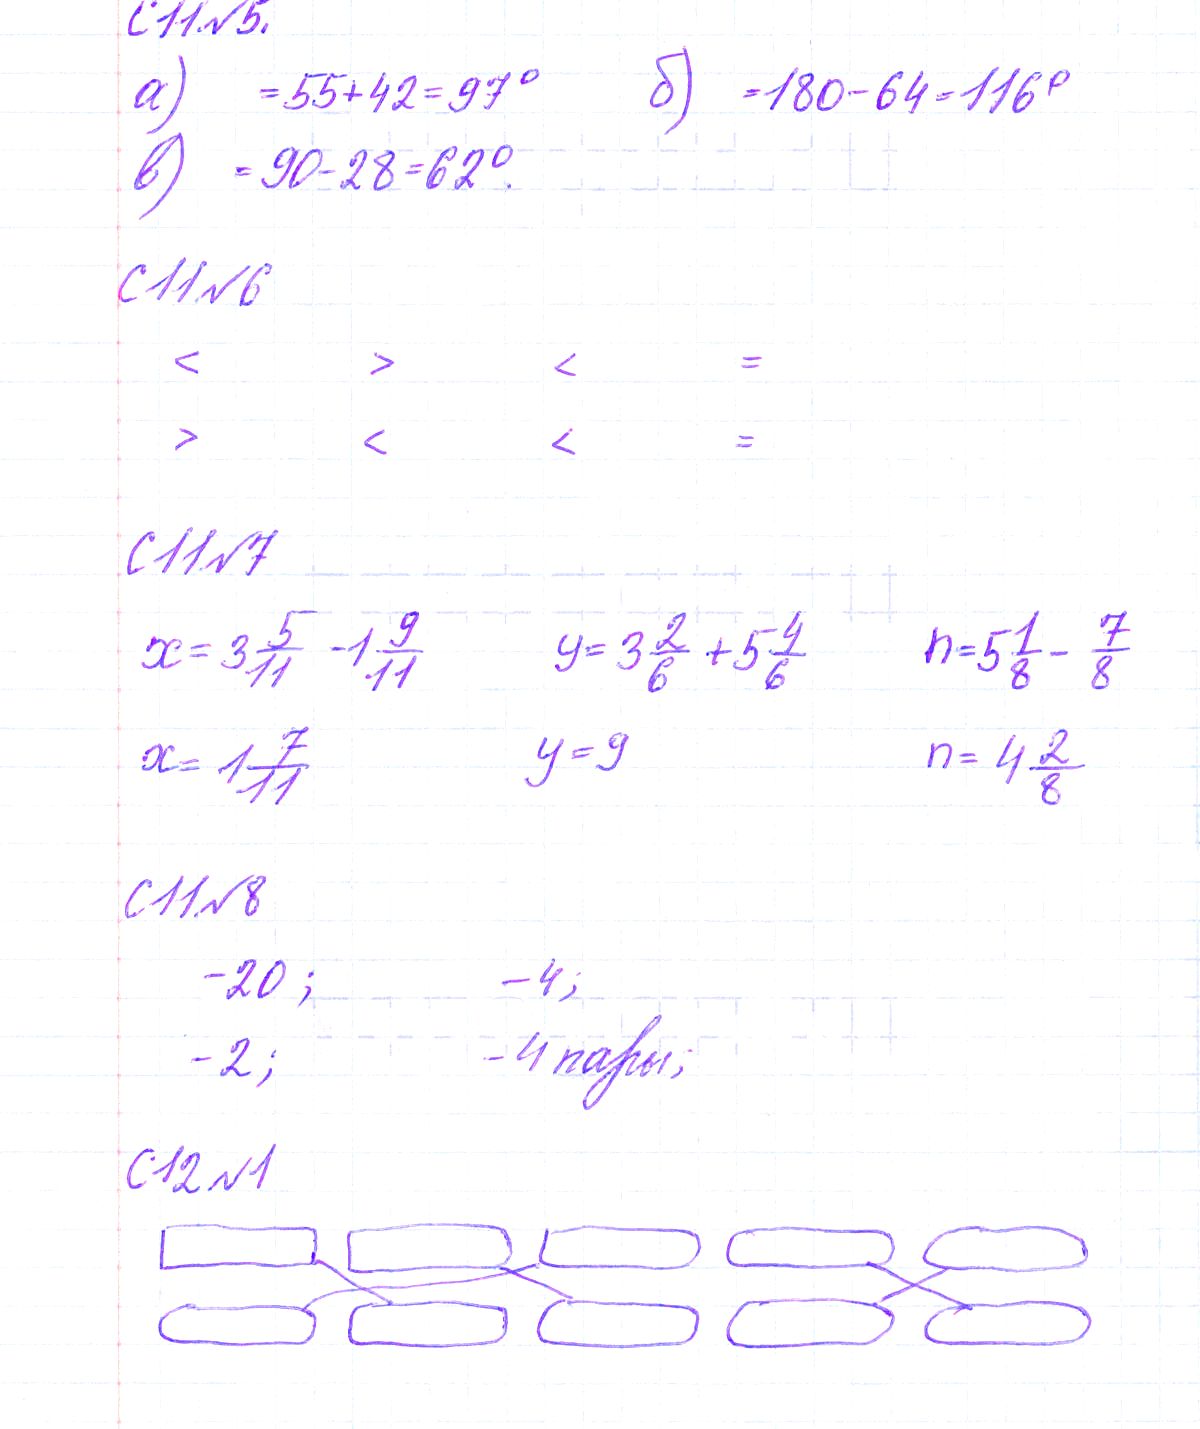 С11№5.
а) =55+42=97° б) =180-64=116°
в) =90-28=62°.
С11№6
< > < =
> < < =
С11№7
x=3 5/11 -1 9/11 y=3 2/6 +5 4/6 n=5 1/8 - 7/8
x=1 7/11 y=9 n=4 2/8
С11№8
-20; -4;
-2; -4 пары;
С12№1